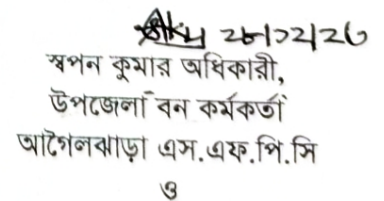 ২৮/১২/২৩
স্বপন কুমার অধিকারী,
উপজেলা বন কর্মকর্তা
আগৈলঝাড়া এস.এফ.পি.সি
ও